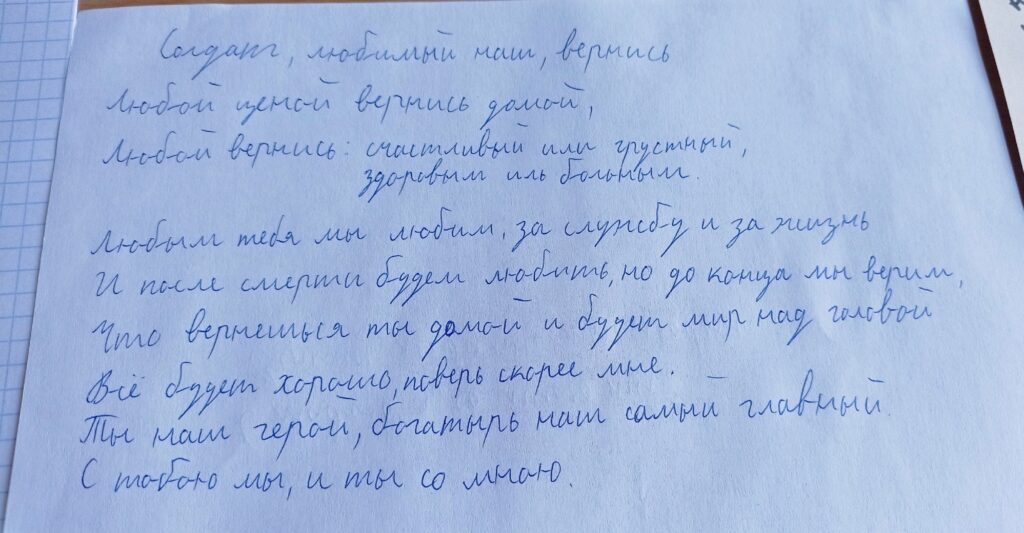 Солдат, любимый наш, вернись
Любой ценой вернись домой,
Любой вернись: счастливый или грустный,
здоровым иль больным.
Любым тебя мы любим, за службу и за жизнь
И после смерти будем любить, но до конца мы верим,
Что вернешься ты домой и будет мир над головой
Всё будет хорошо, поверь скорее мне.
Ты наш герой, богатырь наш самый главный.
С тобою мы, и ты со мною.